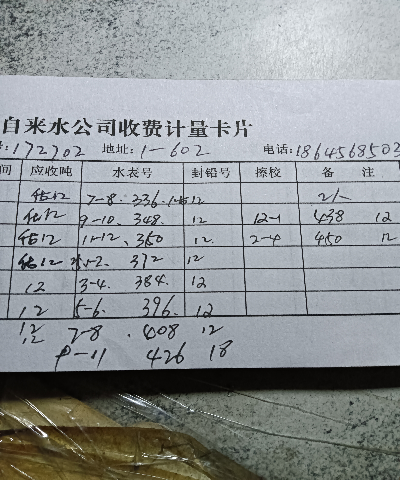 自来水公司收费计量卡片
:172702 地址:1-602 电话:1864568503
间 应收吨 水表号 封铅号 擦校 备 注
估12 7-8. 336. 12
估12 9-10. 348. 12 12-1 438 12
估12 11-12. 350 12. 2-4 450 12
估12 1-2. 372 12
12 3-4. 384. 12
12 5-6. 396. 12
12 7-8 . 408 12
12 9-11 426 18